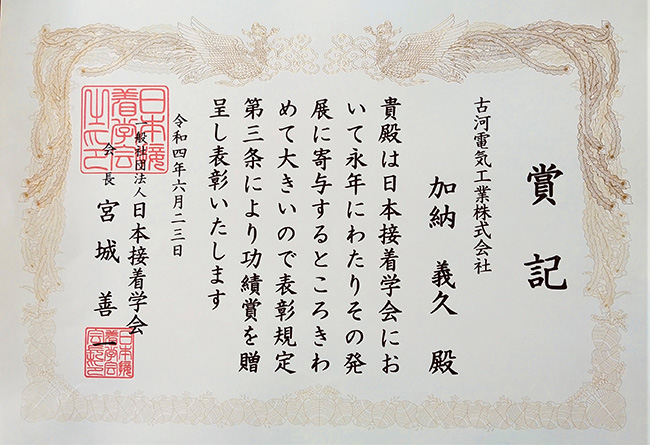 賞記
古河電気工業株式会社
加納 義久 殿
貴殿は日本接着学会にお
いて永年にわたりその発
展に寄与するところきわ
めて大きいので表彰規定
第三条により功績賞を贈
呈し表彰いたします
令和四年六月二三日
一般社団法人 日本接着学会
会長 宮城 善一
日本接着学会之印